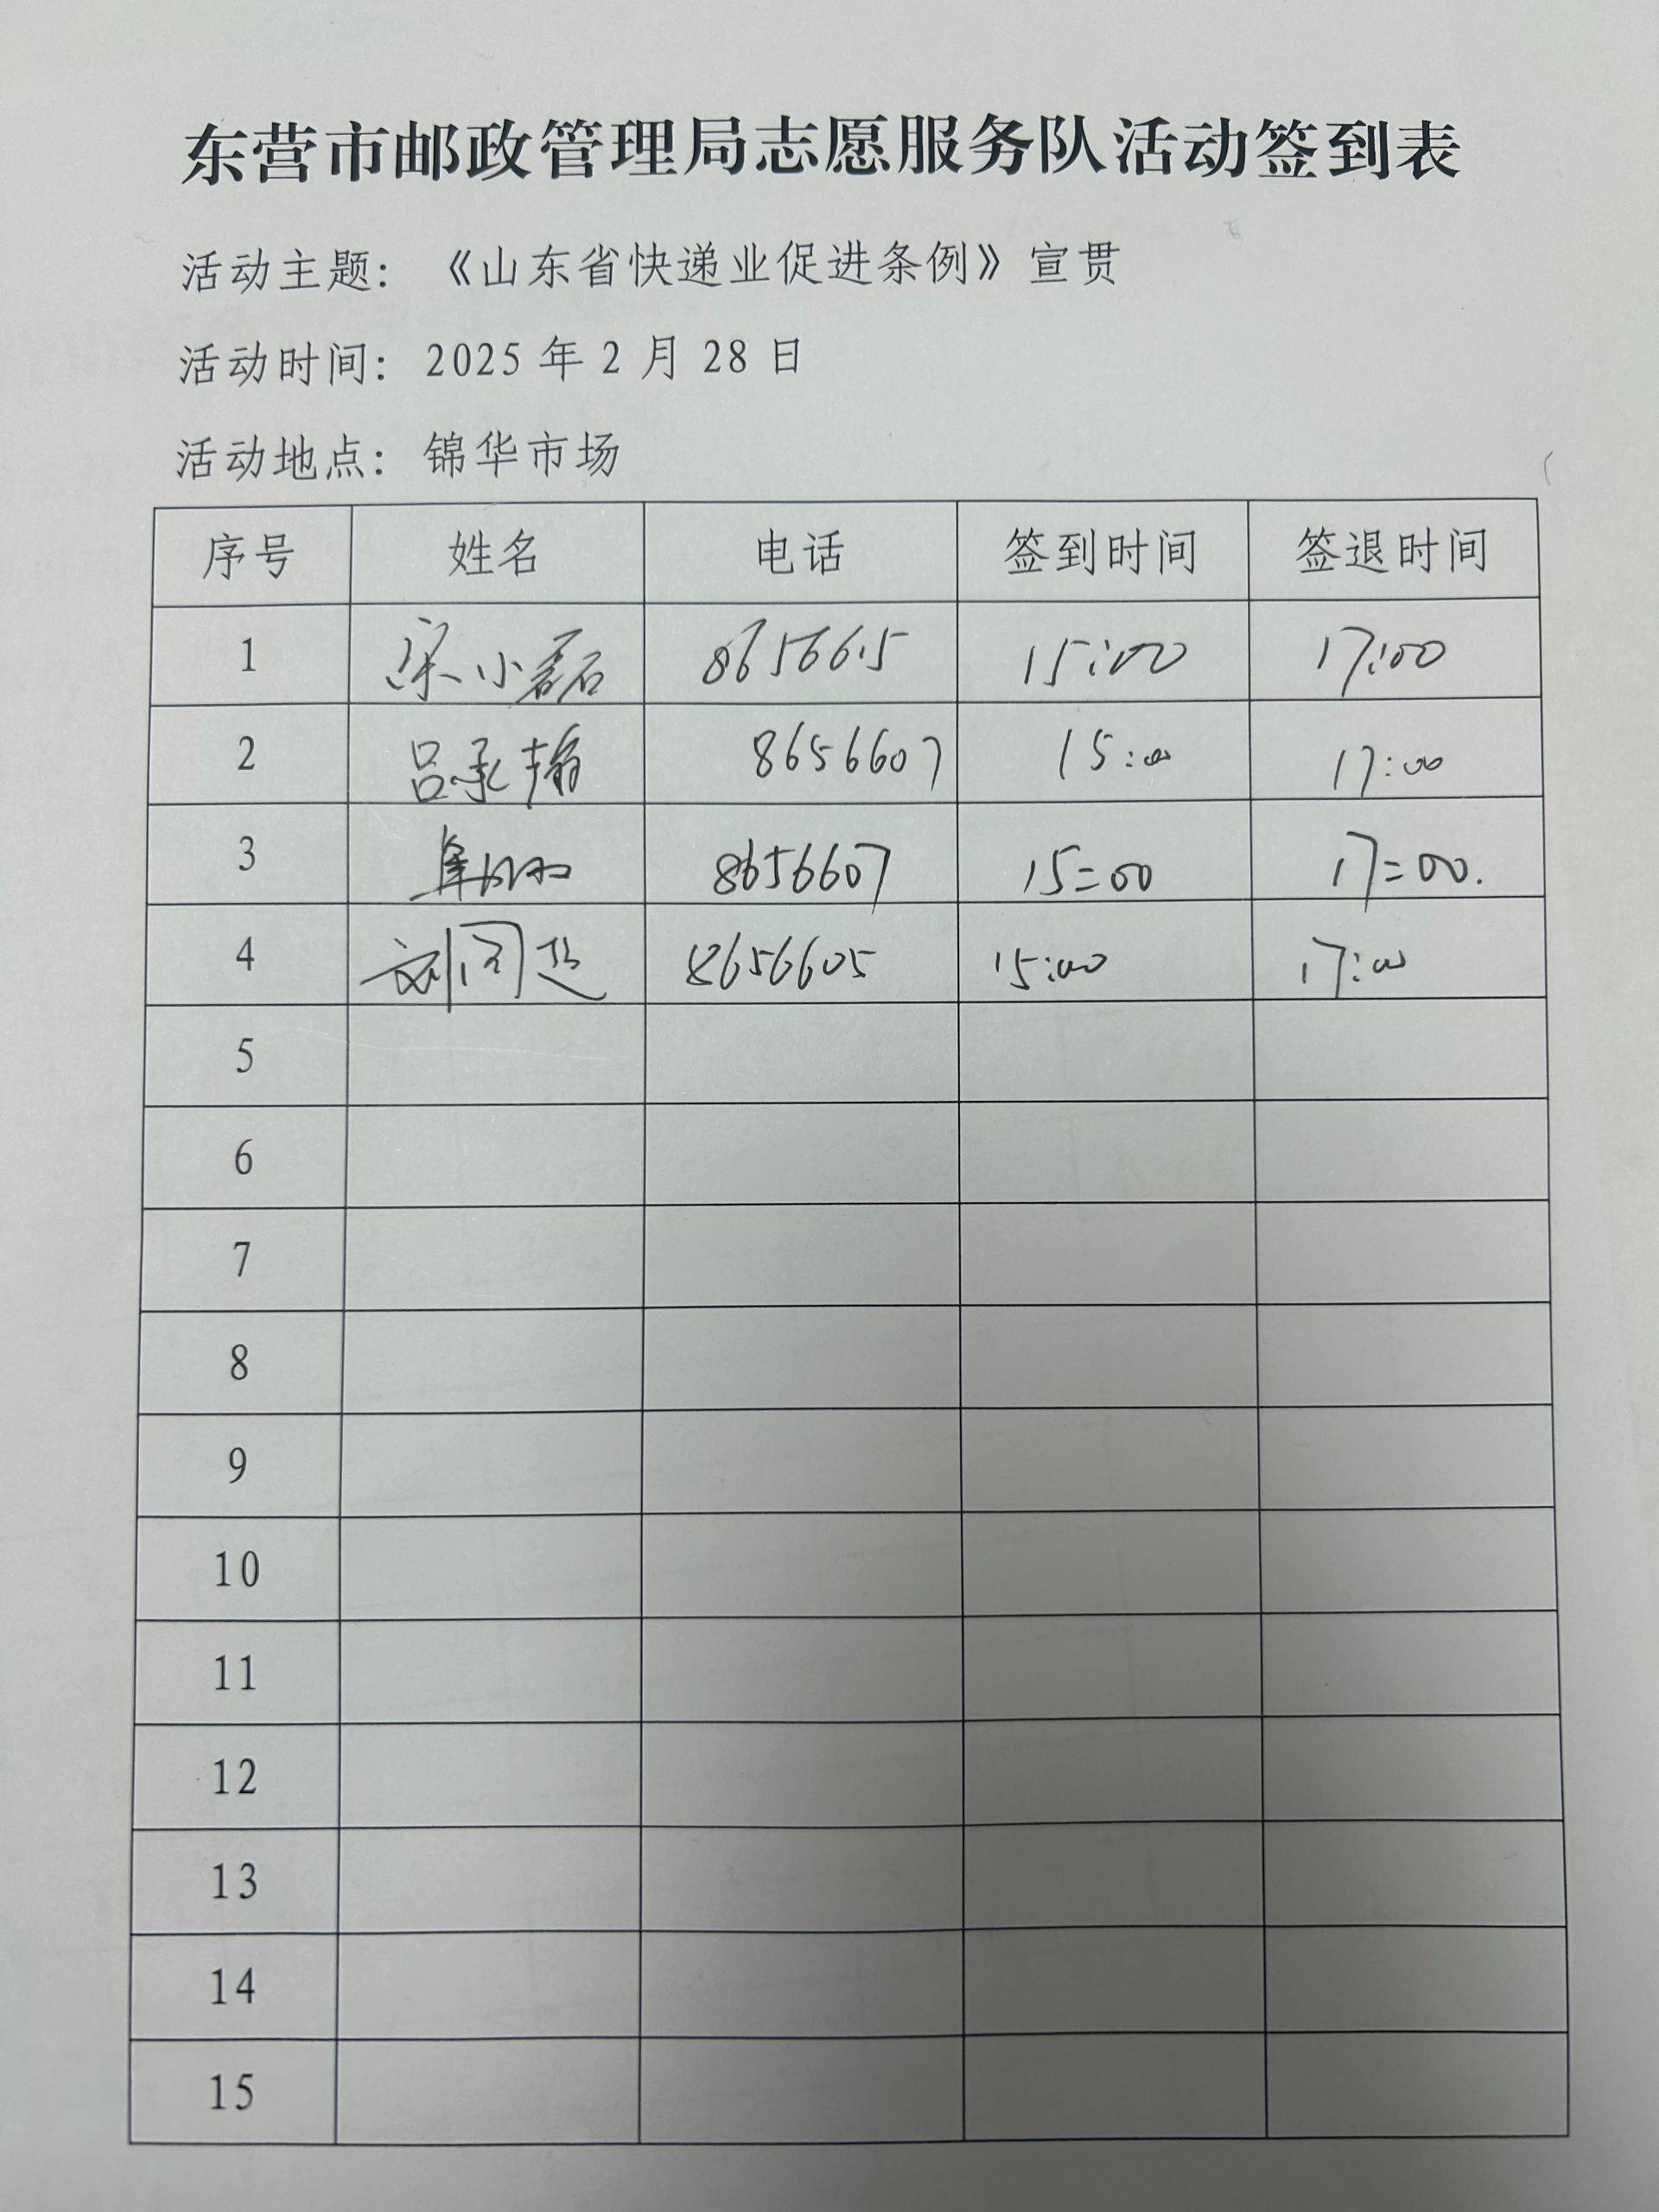 东营市邮政管理局志愿服务队活动签到表
活动主题：《山东省快递业促进条例》宣贯
活动时间：2025年2月28日
活动地点：锦华市场
序号 姓名 电话 签到时间 签退时间
1 宋小磊 8656615 15:00 17:00
2 吕承翰 8656607 15:00 17:00
3 8656607 15:00 17:00.
4 刘同 8656605 15:00 17:00
5
6
7
8
9
10
11
12
13
14
15